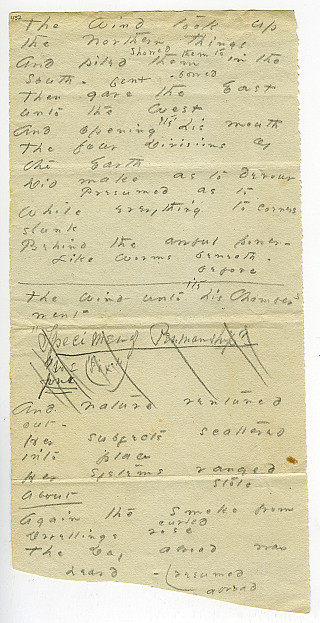 The Wind took up
the Northern things
Showed them to
And piled them in the
South - bent - bowed
Then gave the East
unto the West
And opening his mouth
its
The four Divisions of
the Earth
Did make as to Devour
Presumed as to
While everything to corners
slunk
Behind the awful power -
Like worms beneath -
before
The Wind unto his Chambers
its
went
Specimens Penmanship
And nature ventured
out -
Her subjects scattered
into place
Her systems ranged
stole
About
Again the smoke from
Dwellings rose
curled
The Day abroad was
heard - resumed
abroad